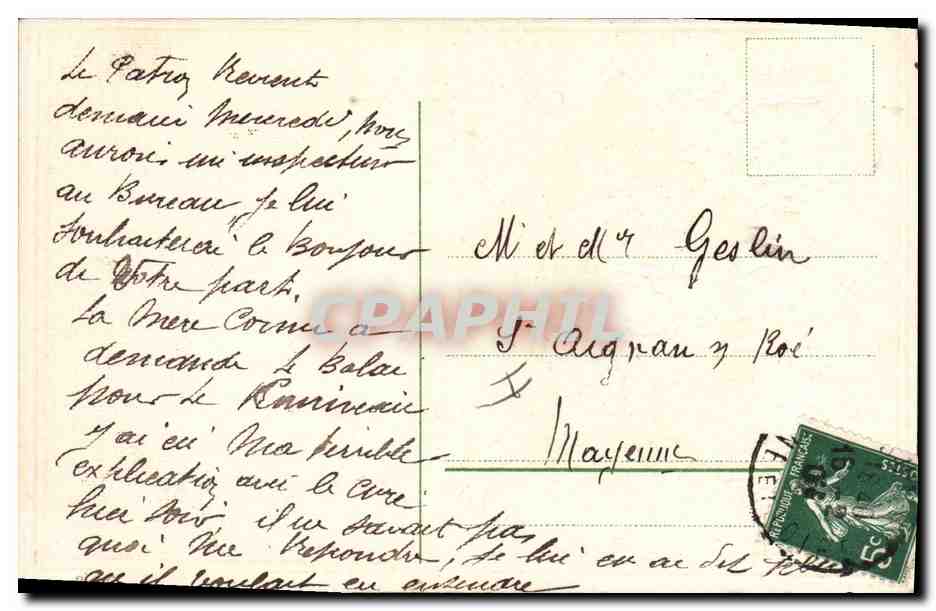 Le Patron Revient
demain Mercredi, nous
aurons un inspecteur
au Bureau, je lui
souhaiterai le Bonjour
de Votre part
La Mere Corme a
demandé le Balai
pour le
j'ai eu Ma terrible
explication avec le curé
hier soir, il ne savait pas
quoi me repondre, je lui en ai dit plus
qu'il voulait en entendre
Mr et Mme Geslin
St Aignan s/ Roé
Mayenne
CPARAPHIL
REPUBLIQUE FRANCAISE
5c